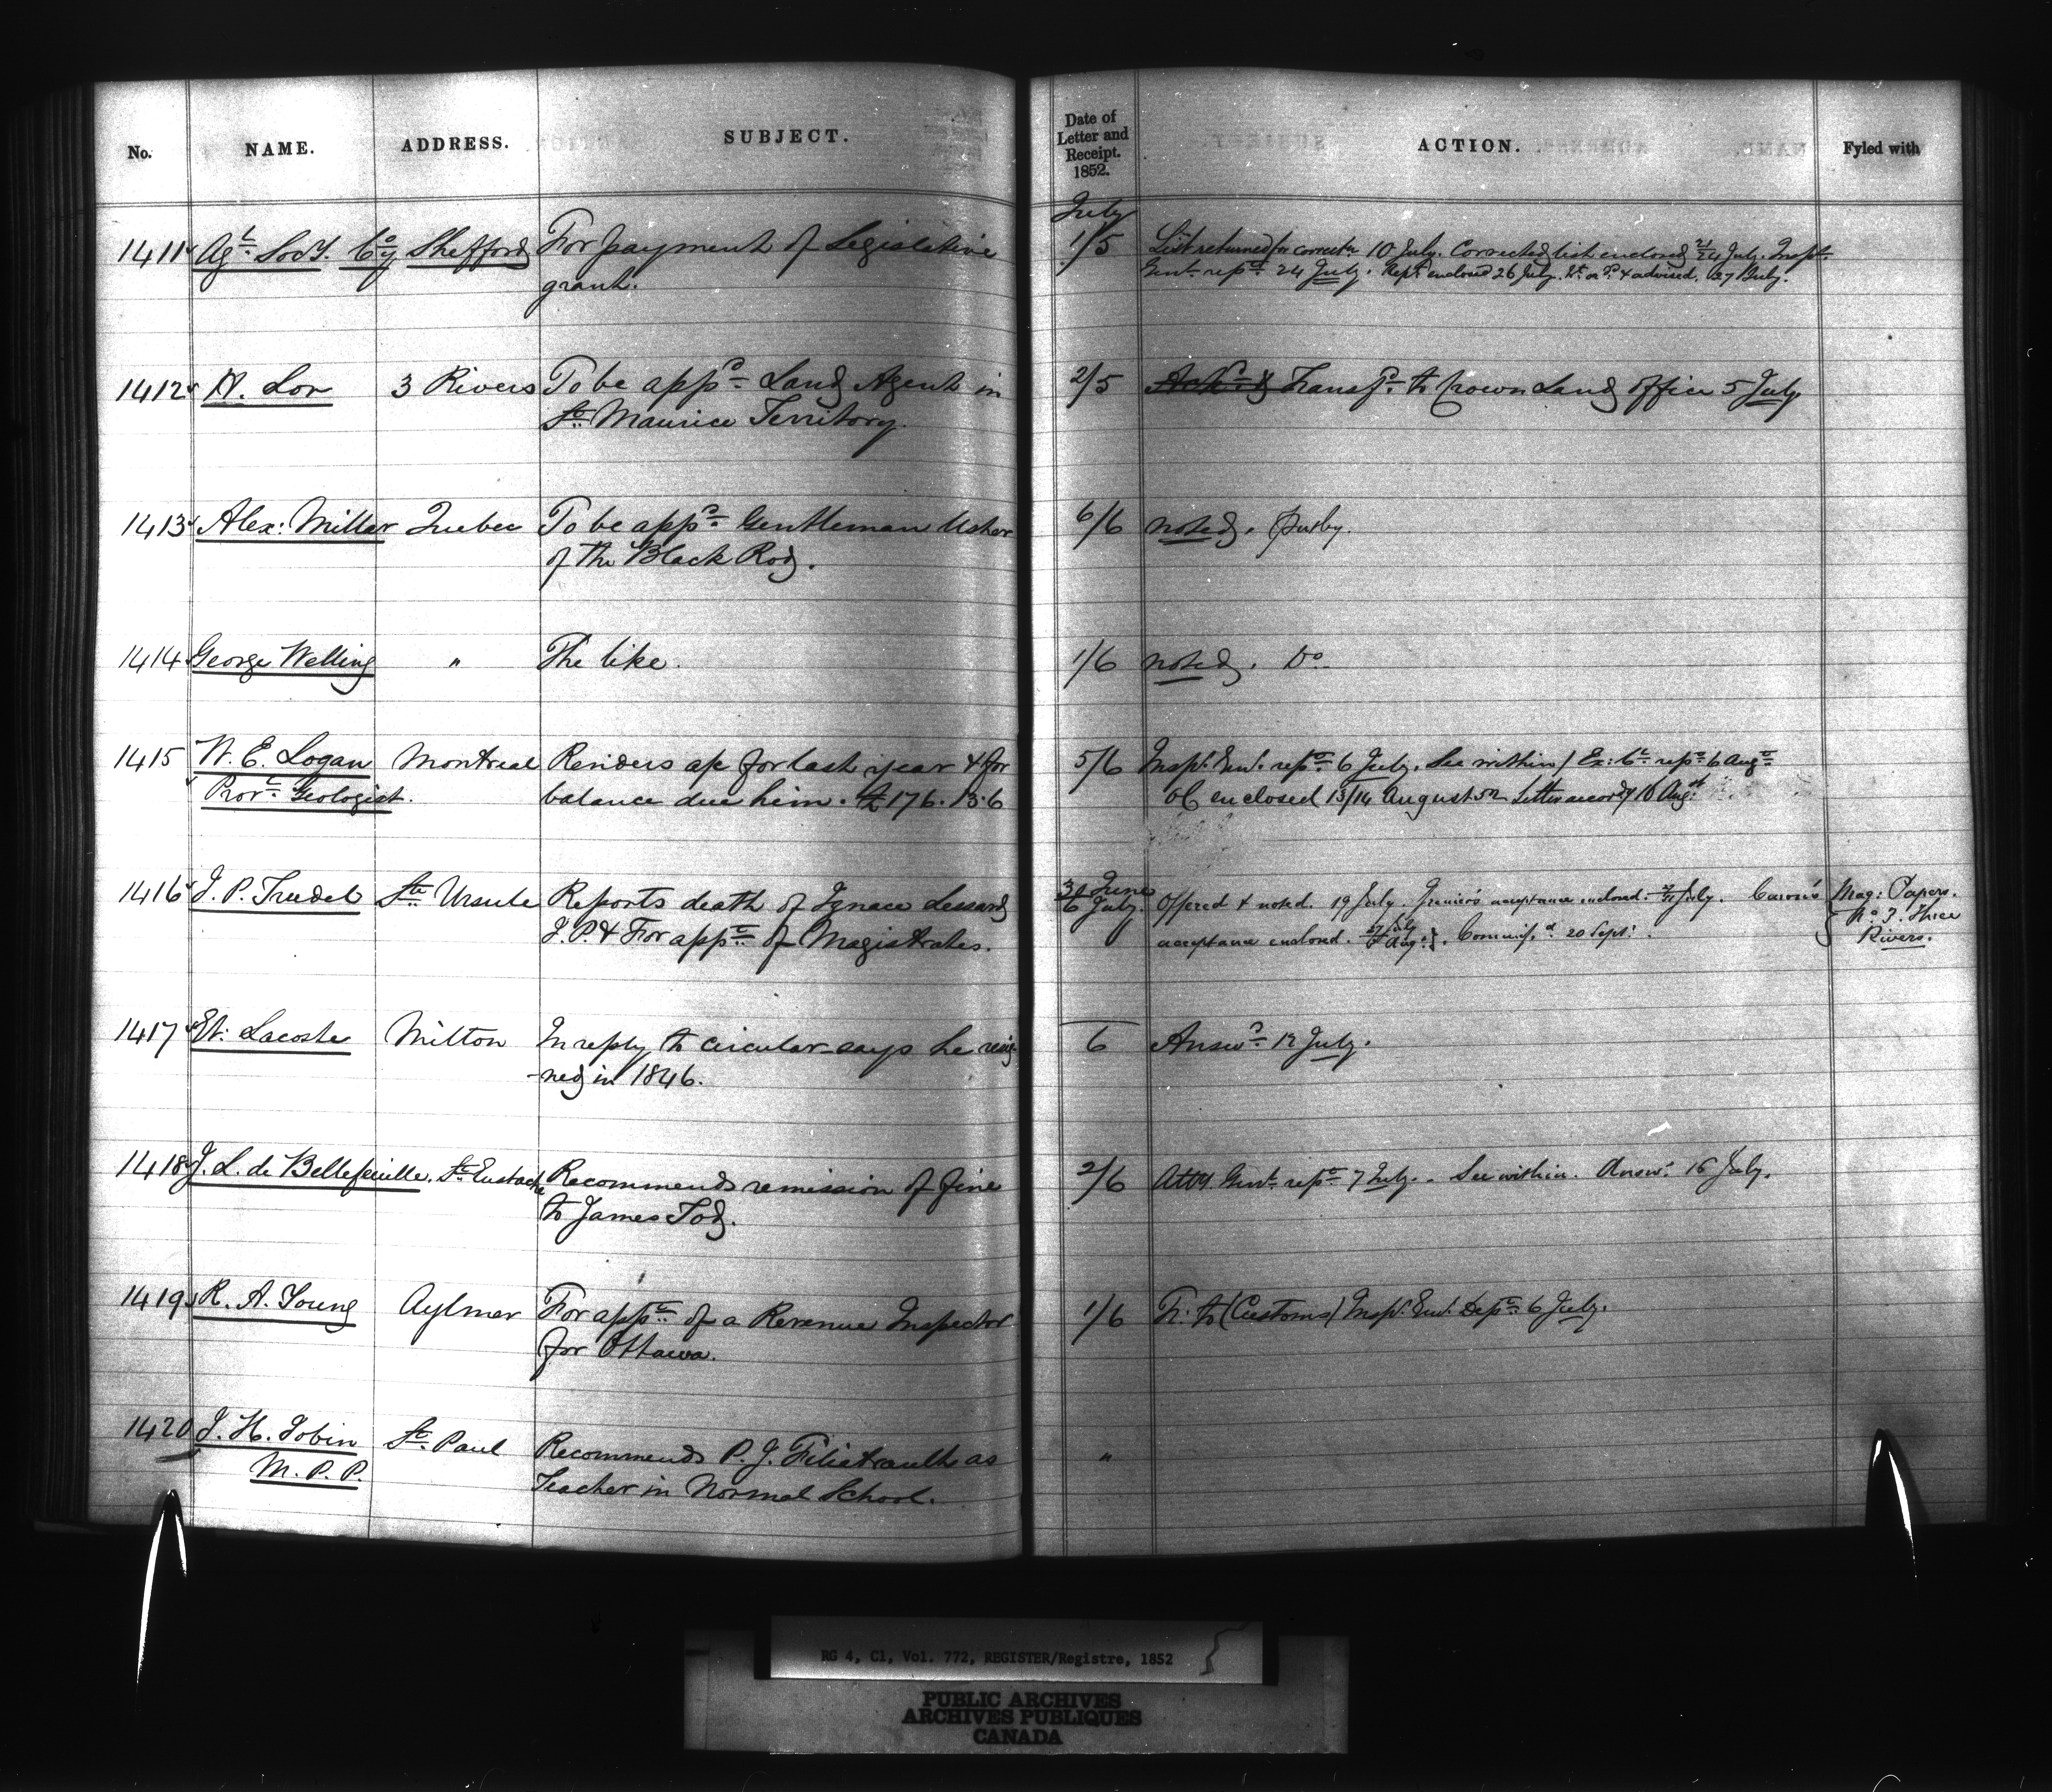 No. NAME. ADDRESS. SUBJECT. Date of Letter and Receipt. 1852. ACTION. Fyled with
July
1411 Agl. Socy. Coy Shefford For payment of Legislative 1/5 List returned for correctn 10 July. Corrected list enclosed 21/24 July. Insp.
grant. Genl. repd. 24 July. Rept. enclosed 26 July. & advised. 27 July.
1412 A. Lor 3 Rivers To be appd. Land Agent in 2/5 Transfd. to Crown Land Office 5 July.
St. Maurice Territory.
1413 Alex: Miller Quebec To be appd. Gentleman Usher 6/6 noted.
of the Black Rod.
1414 George Welling " The like. 1/6 noted. Do.
1415 W. E. Logan Montreal Renders a/c for last year & for 5/6 Insp. Genl. repd. 6 July. See within / Ex: Cl. repd. 6 Augt.
Provl. Geologist. balance due him. £176.13.6 OC enclosed 13/14 August 52 Letter accordy 16 Augt.
1416 J. P. Trudel Ste. Ursule Reports death of Ignace Lessard 30 June Offered & noted. 19 July. Grenier's acceptance enclosed. July. Caron's Mag: Papers.
J. P. & For appt. of Magistrates. 6 July. acceptance enclosed. 27 July 6 Aug: }. Commiss.d 20 Sept: No. 7. Three
Rivers.
1417 Et. Lacoste Milton In reply to circular says he resig- 6 Answd. 12 July.
-ned in 1846.
1418 J. L. de Bellefeuille. St. Eustache Recommends remission of fine 2/6 Atty. Genl. repd. 7 July. See within. Answd. 16 July.
to James Tod.
1419 R. A. Young Aylmer For appt. of a Revenue Inspector 1/6 Tr. to (Customs) Insp. Genl. Dept. 6 July.
for Ottawa.
1420 J. H. Jobin St. Paul Recommends P. J. Filiatrault as "
M. P. P. Teacher in Normal School.
RG 4, C1, Vol. 772, REGISTER/Registre, 1852
PUBLIC ARCHIVES
ARCHIVES PUBLIQUES
CANADA